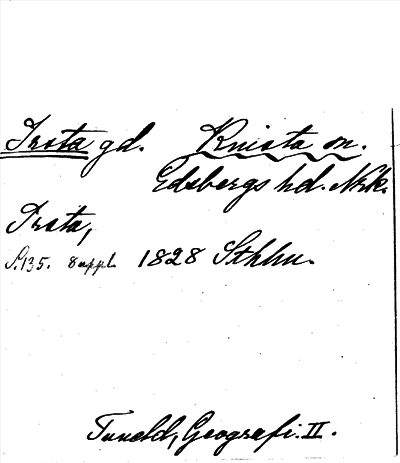 Irsta gd. Knista sn.
Edsbergs hd. Nrk.
Irsta,
S. 135. 8 uppl. 1828 Sthlm.
Tuneld, Geografi. II.